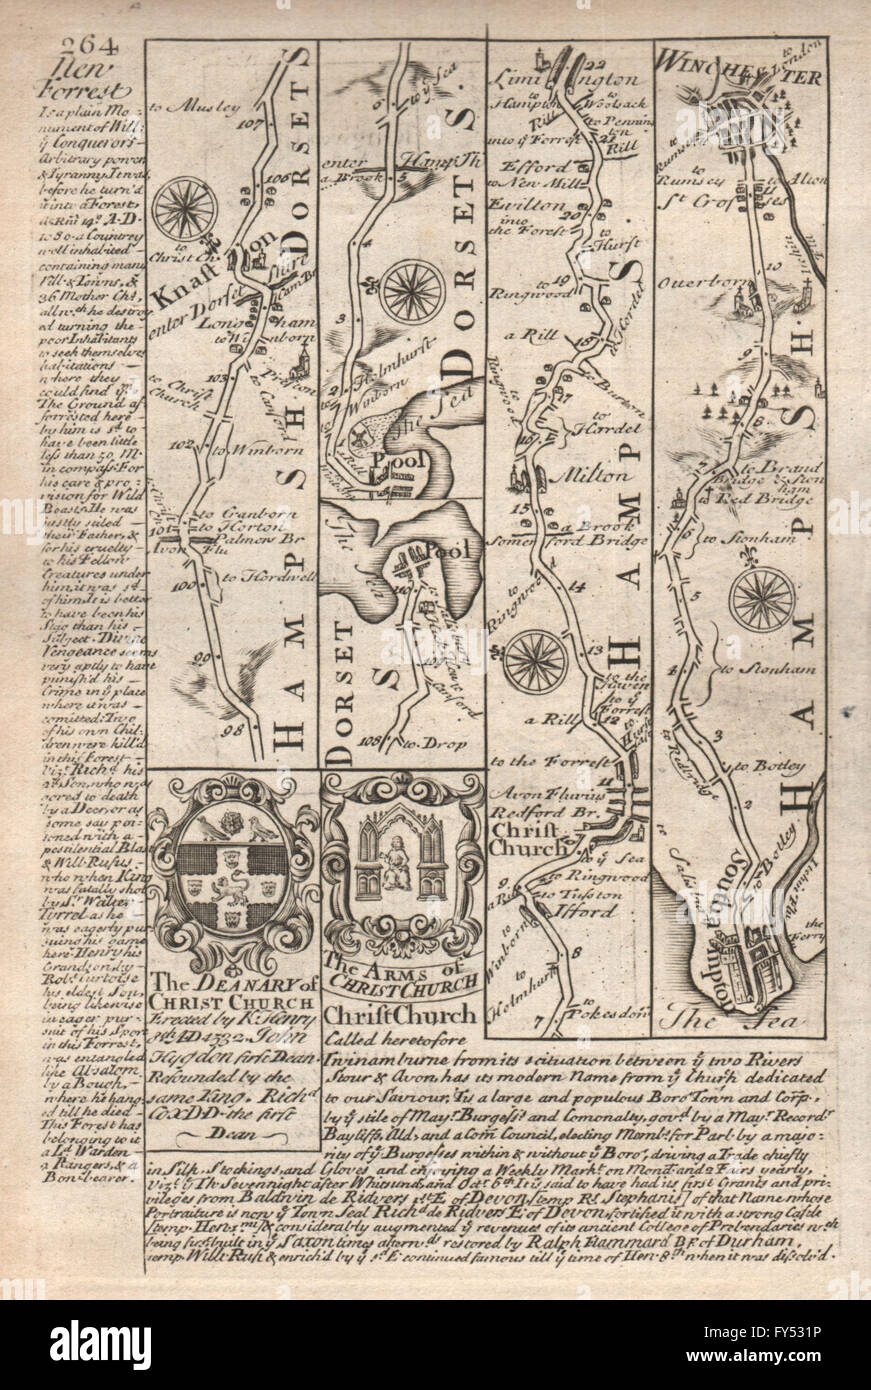 264
New
Forrest
Is a plain Mo-
nument of Will:
yͤ Conquerors
Arbitrary power
& Tyranny. It was
before he turn'd
it into a Forest,
A.D.
to 80. a Countrey
well inhabited
containing many
Vill. & Towns, &
36 Mother Chs,
all wͨh he destroy
ed turning the
poor Inhabitants
to seek themselves
habitations
where they
could find yͫ
The Ground af-
forrested here
by him is sͩ to
have been little
less than 50 M.
in compass. For
his care & pro-
vision for Wild
Beasts He was
justly stiled
their Father, &
for his cruelty
to his Fellow
Creatures under
him, it was sͩ
of him, It is better
to have been his
Stag than his
Subject. Divine
Vengeance seems
very aptly to have
punish'd his
Crime in yͤ place
where it was
comitted: Two
of his own Chil-
dren were kill'd
in this Forrest
viz.ͭ Richͩ his
2ͩ Son, who was
gored to death
by a Deer, or as
some say poi-
soned with a
pestilential Blast
& Will. Rufus
who when King
was fatally shot
by Sͬ Walter
Tyrrel as he
was eagerly pur
suing his game
here. Henry his
Grandson by
Robͭ Curtoise
his eldest Son,
being likewise
in eager pur-
suit of his Sport
in this Forrest,
was entangled
like Absalom
by a Bough,
where he hang-
ed till he died
This Forest has
belonging to it
a Lͩ Warden
2 Rangers, & a
Bow-bearer.
to Musley
107
106
DORSETS
to Christ Ch.
Knaston
enter Dorset shire
Longham
to Winborn
103
Preston
to Christ
Church
to Canford
102
to Winborn
to Cranborn
to Horton
101
Palmers Br
Avon Flu
100
to Hordwell
99
98
HAMPSH
6
to yͤ Sea
enter
Hampsh
a Brook
5
4
3
DORSETS.
2
Holmhurst
to Winborn
The Sea
a Rill
Pool
The Sea
Pool
110
DORSET
S
108
to Drop
Limington
22
to Hampton
to Woolsack
Rill
to Pennin
ton
into yͤ Forrest
21
Rill
Efford
to New Mill
Evilton
20
into
the Forest
to Hurst
19
to
Ringwood
a Rill
to Hordel
Ringwood
to Burton
17
to
Hardel
16
Milton
15
a Brook
Somerford Bridge
to
Ringwood
14
13
to the
Haven
a Rill
12
to the Forrest
11
Avon Fluvius
Redford Br.
Christ
Church
to yͤ Sea
to Ringwood
9
to Tuston
a Rill
Ifford
to Winborn
8
to
Holmhurst
to
Pokesdown
7
HAMPS
WINCHESTER
to London
to Rumsey
to
Rumsey
to Alton
Sͭ Crosses
10
Ouerborn
9
7
to Brand
Bridge & Ston
ham
to Red Bridge
6
to Stonham
5
4
to Stonham
3
to Redbridge
to Botley
2
to Botley
Southampton
the
Ferry
The Sea
HAMPSH.
The DEANARY of
CHRIST CHURCH
Erected by K. Henry
8th AD 1532. John
Hygdon first Dean.
Refounded by the
same King. Richͩ
Cox DD. the first
Dean
The ARMS of
CHRIST CHURCH
Christ Church
Called heretofore
Twinamburne from its scituation between yͤ two Rivers
Stour & Avon, has its modern Name from yͤ Church dedicated
to our Saviour, Tis a large and populous Boro Town and Corp.
by yͤ stile of Mayͬ Burgesses and Comonalty, govͩ by a Mayͬ Recordͬ
Bayliffs, Ald. and a Com̄ Council, electing Membͬs for Parl. by a majo-
rity of yͤ Burgesses within & without yͤ Boro, driving a Trade chiefly
in Silk Stockings, and Gloves and enjoying a Weekly Markͭ on Mond. and 2 Fairs yearly,
vizͭ yͤ Th. Sevennight after Whitsund. and Octͬ 6th It is said to have had its first Grants and pri-
vileges from Baldwin de Ridvers 1sͭ E. of Devon, [temp. Rs. Stephanis] of that Name whose
Portraiture is now yͤ Town Seal Richͩ de Ridvers E. of Devon fortified it with a strong Castle
temp. Hen. 1mi & considerably augmented yͤ revenues of its ancient College of Prebendaries wͨh
being first built in yͤ Saxon times afterwͩs restored by Ralph Flammard Bp. of Durham,
temp. Willͭ Rufi & enrich'd by yͤ sͩ E. continued famous till yͤ time of Hen. 8th when it was dissolv'd.
alamy
alamy
alamy stock photo
FY531P
www.alamy.com